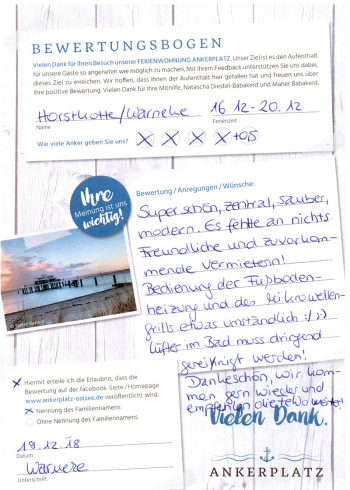 BEWERTUNGSBOGEN
Vielen Dank für Ihren Besuch unserer FERIENWOHNUNG ANKERPLATZ. Unser Ziel ist es den Aufenthalt
für unsere Gäste so angenehm wie möglich zu machen. Mit Ihrem Feedback unterstützen Sie uns dabei,
dieses Ziel zu erreichen. Wir hoffen, dass Ihnen der Aufenthalt hier gefallen hat und freuen uns über
Ihre positive Bewertung. Vielen Dank für Ihre Mithilfe, Natascha Diestel-Babakerd und Maher Babakerd.
Horstkotte/Warneke 16.12-20.12
Name Ferienzeit
Wie viele Anker geben Sie uns? X X X X +0,5
Ihre
Meinung ist uns
wichtig!
Bewertung / Anregungen / Wünsche:
Super schön, zentral, sauber,
modern. Es fehlte an nichts.
Freundliche und zuvorkom-
mende Vermieterin!
Bedienung der Fußboden-
heizung und des Mikrowellen-
grills etwas umständlich :/ ;)
Lüfter im Bad muss dringend
gereinigt werden!
Dankeschön, wir kom-
men gern wieder und
empfehlen die FeWo weiter!
X Hiermit erteile ich die Erlaubnis, dass die
Bewertung auf der facebook-Seite / Homepage
www.ankerplatz-ostsee.de veröffentlicht wird.
X Nennung des Familiennamens
Ohne Nennung des Familiennamens
19.12.18
Datum
Warneke
Unterschrift
Vielen Dank.
ANKERPLATZ